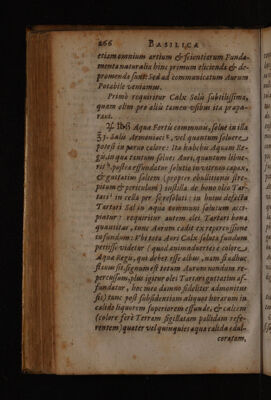 266 BASILICA
etiam omnium artium & scientiarum Funda-
menta naturalis hinc primum elicienda & de-
promenda sunt: Sed ad communicatum Aurum
Potabile veniamus.
Primò requiritur Calx Solis subtilissima,
quam olim pro aliis tamen usibus ita prapa-
raui.
Aquæ Fortis communis, solue in illa
Salis Armoniaci, vel quantum soluere
potest in paruo calore: Ita habebis Aquam Re-
gu, in qua tantum solues Auri, quantum libue-
rit, postea effundatur solutio in vitrum capax,
& guttatim saltem (propter ebullitionem stre-
pitum & periculum) instilla de bono oleo Tar-
tari in cella per se resoluti: in huius defectu
Tartari Sal in aqua communi solutum acci-
piatur: requiritur autem olei Tartari bona
quantitas, tunc Aurum cadit ex repercussione
in fundum: Ubi tota Auri Calx soluta fundum
petiisse videtur (quod animaduertes è colore
Aqua Regis, qui debet esse albus, nam si adhuc
sit signum est totum Aurum nondum re-
percussum, plus igitur olei Tartari guttatim af-
fundatur, hoc meo damno fideliter admonitus
sis) tunc post subsidentiam aliquot horarum in
calido liquorem superiorem effunde, & calcem
(colore ferè Terram Sigillatam pallidam refe-
rentem) quater vel quinquies aqua calida edul-
coratam,